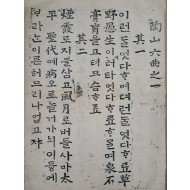 陶山六曲之一
其一
이런들엇다ᄒᆞ며뎌런들엇다ᄒᆞ료草
野愚生이이러타엇다ᄒᆞ료ᄒᆞᄆᆞᆯ며泉石
膏肓을고텨므슴ᄒᆞ료
其二
煙霞로지블삼고風月로버들사마太
平聖代예病으로늘거가뇌이듕에
ᄇᆞ라ᄂᆞᆫ이른허므리나업고쟈